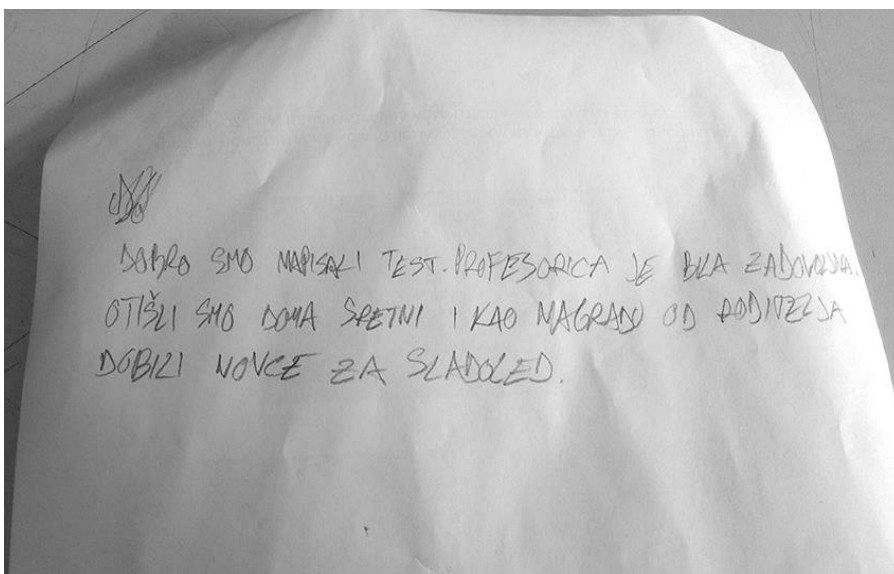 DOBRO SMO NAPISALI TEST. PROFESORICA JE BILA ZADOVOLJNA.
OTIŠLI SMO DOMA SRETNI I KAO NAGRADU OD RODITELJA
DOBILI NOVCE ZA SLADOLED.